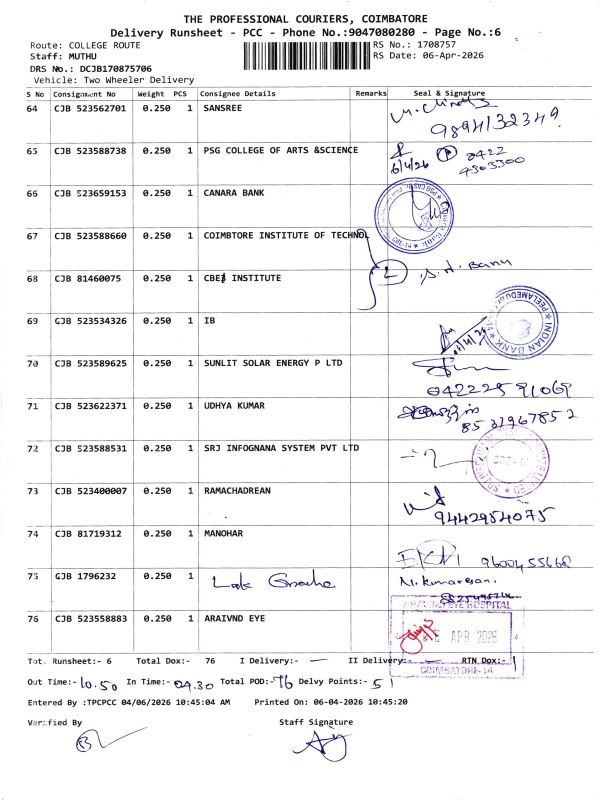 THE PROFESSIONAL COURIERS, COIMBATORE
Delivery Runsheet - PCC - Phone No.:9047080280 - Page No.:6
Route: COLLEGE ROUTE RS No.: 1708757
Staff: MUTHU RS Date: 06-Apr-2026
DRS No.: DCJB170875706
Vehicle: Two Wheeler Delivery
S No Consignment No Weight PCS Consignee Details Remarks Seal & Signature
64 CJB 523562701 0.250 1 SANSREE
9894132349
65 CJB 523588738 0.250 1 PSG COLLEGE OF ARTS &SCIENCE
6/4/26 0422
4303300
66 CJB 523659153 0.250 1 CANARA BANK
67 CJB 523588660 0.250 1 COIMBTORE INSTITUTE OF TECHNOL
68 CJB 81460075 0.250 1 CBEI INSTITUTE
69 GJB 523534326 0.250 1 IB
INDIAN BANK
70 CJB 523589625 0.250 1 SUNLIT SOLAR ENERGY P LTD
04222591069
71 CJB 523622371 0.250 1 UDHYA KUMAR
8531967852
72 CJB 523588531 0.250 1 SRJ INFOGNANA SYSTEM PVT LTD
73 CJB 523400007 0.250 1 RAMACHADREAN
9442954075
74 CJB 81719312 0.250 1 MANOHAR
9600455668
75 GJB 1796232 0.250 1
N. Kumaresan.
76 CJB 523558883 0.250 1 ARAIVND EYE
ARAVIND EYE HOSPITAL
6 APR 2026
COIMBATORE-14
Tot. Runsheet:- 6 Total Dox:- 76 I Delivery:- — II Delivery:- — RTN Dox:- 1
Out Time:- 10.50 In Time:- 04.30 Total POD:- 76 Delvy Points:- 51
Entered By :TPCPCC 04/06/2026 10:45:04 AM Printed On: 06-04-2026 10:45:20
Verified By Staff Signature